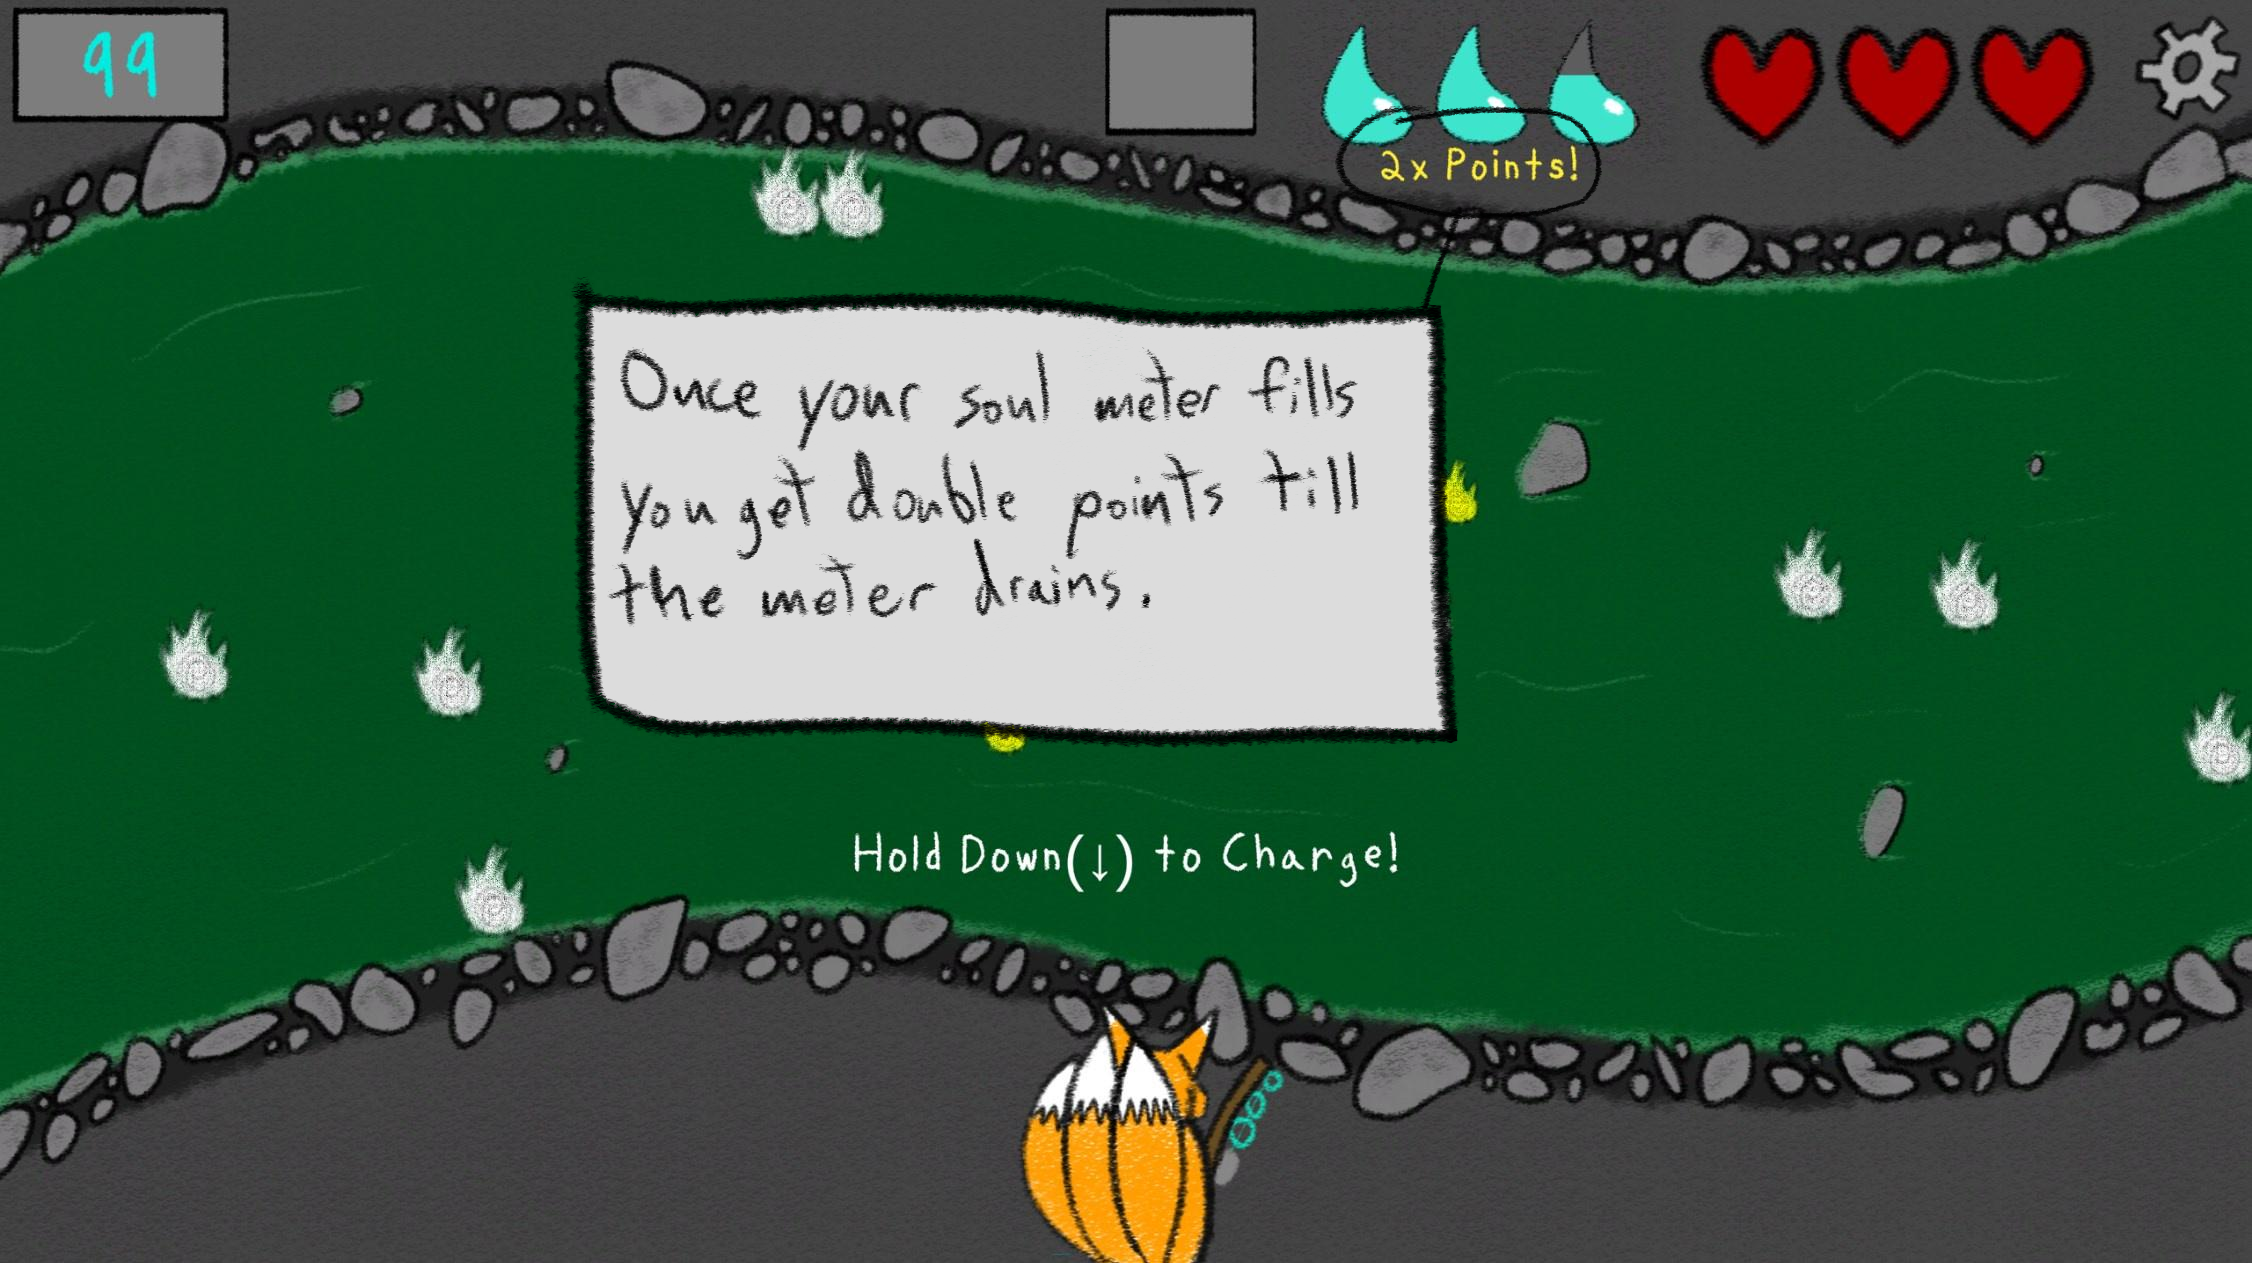 99
2x Points!
Once your soul meter fills
you get double points till
the meter drains.
Hold Down(↓) to Charge!